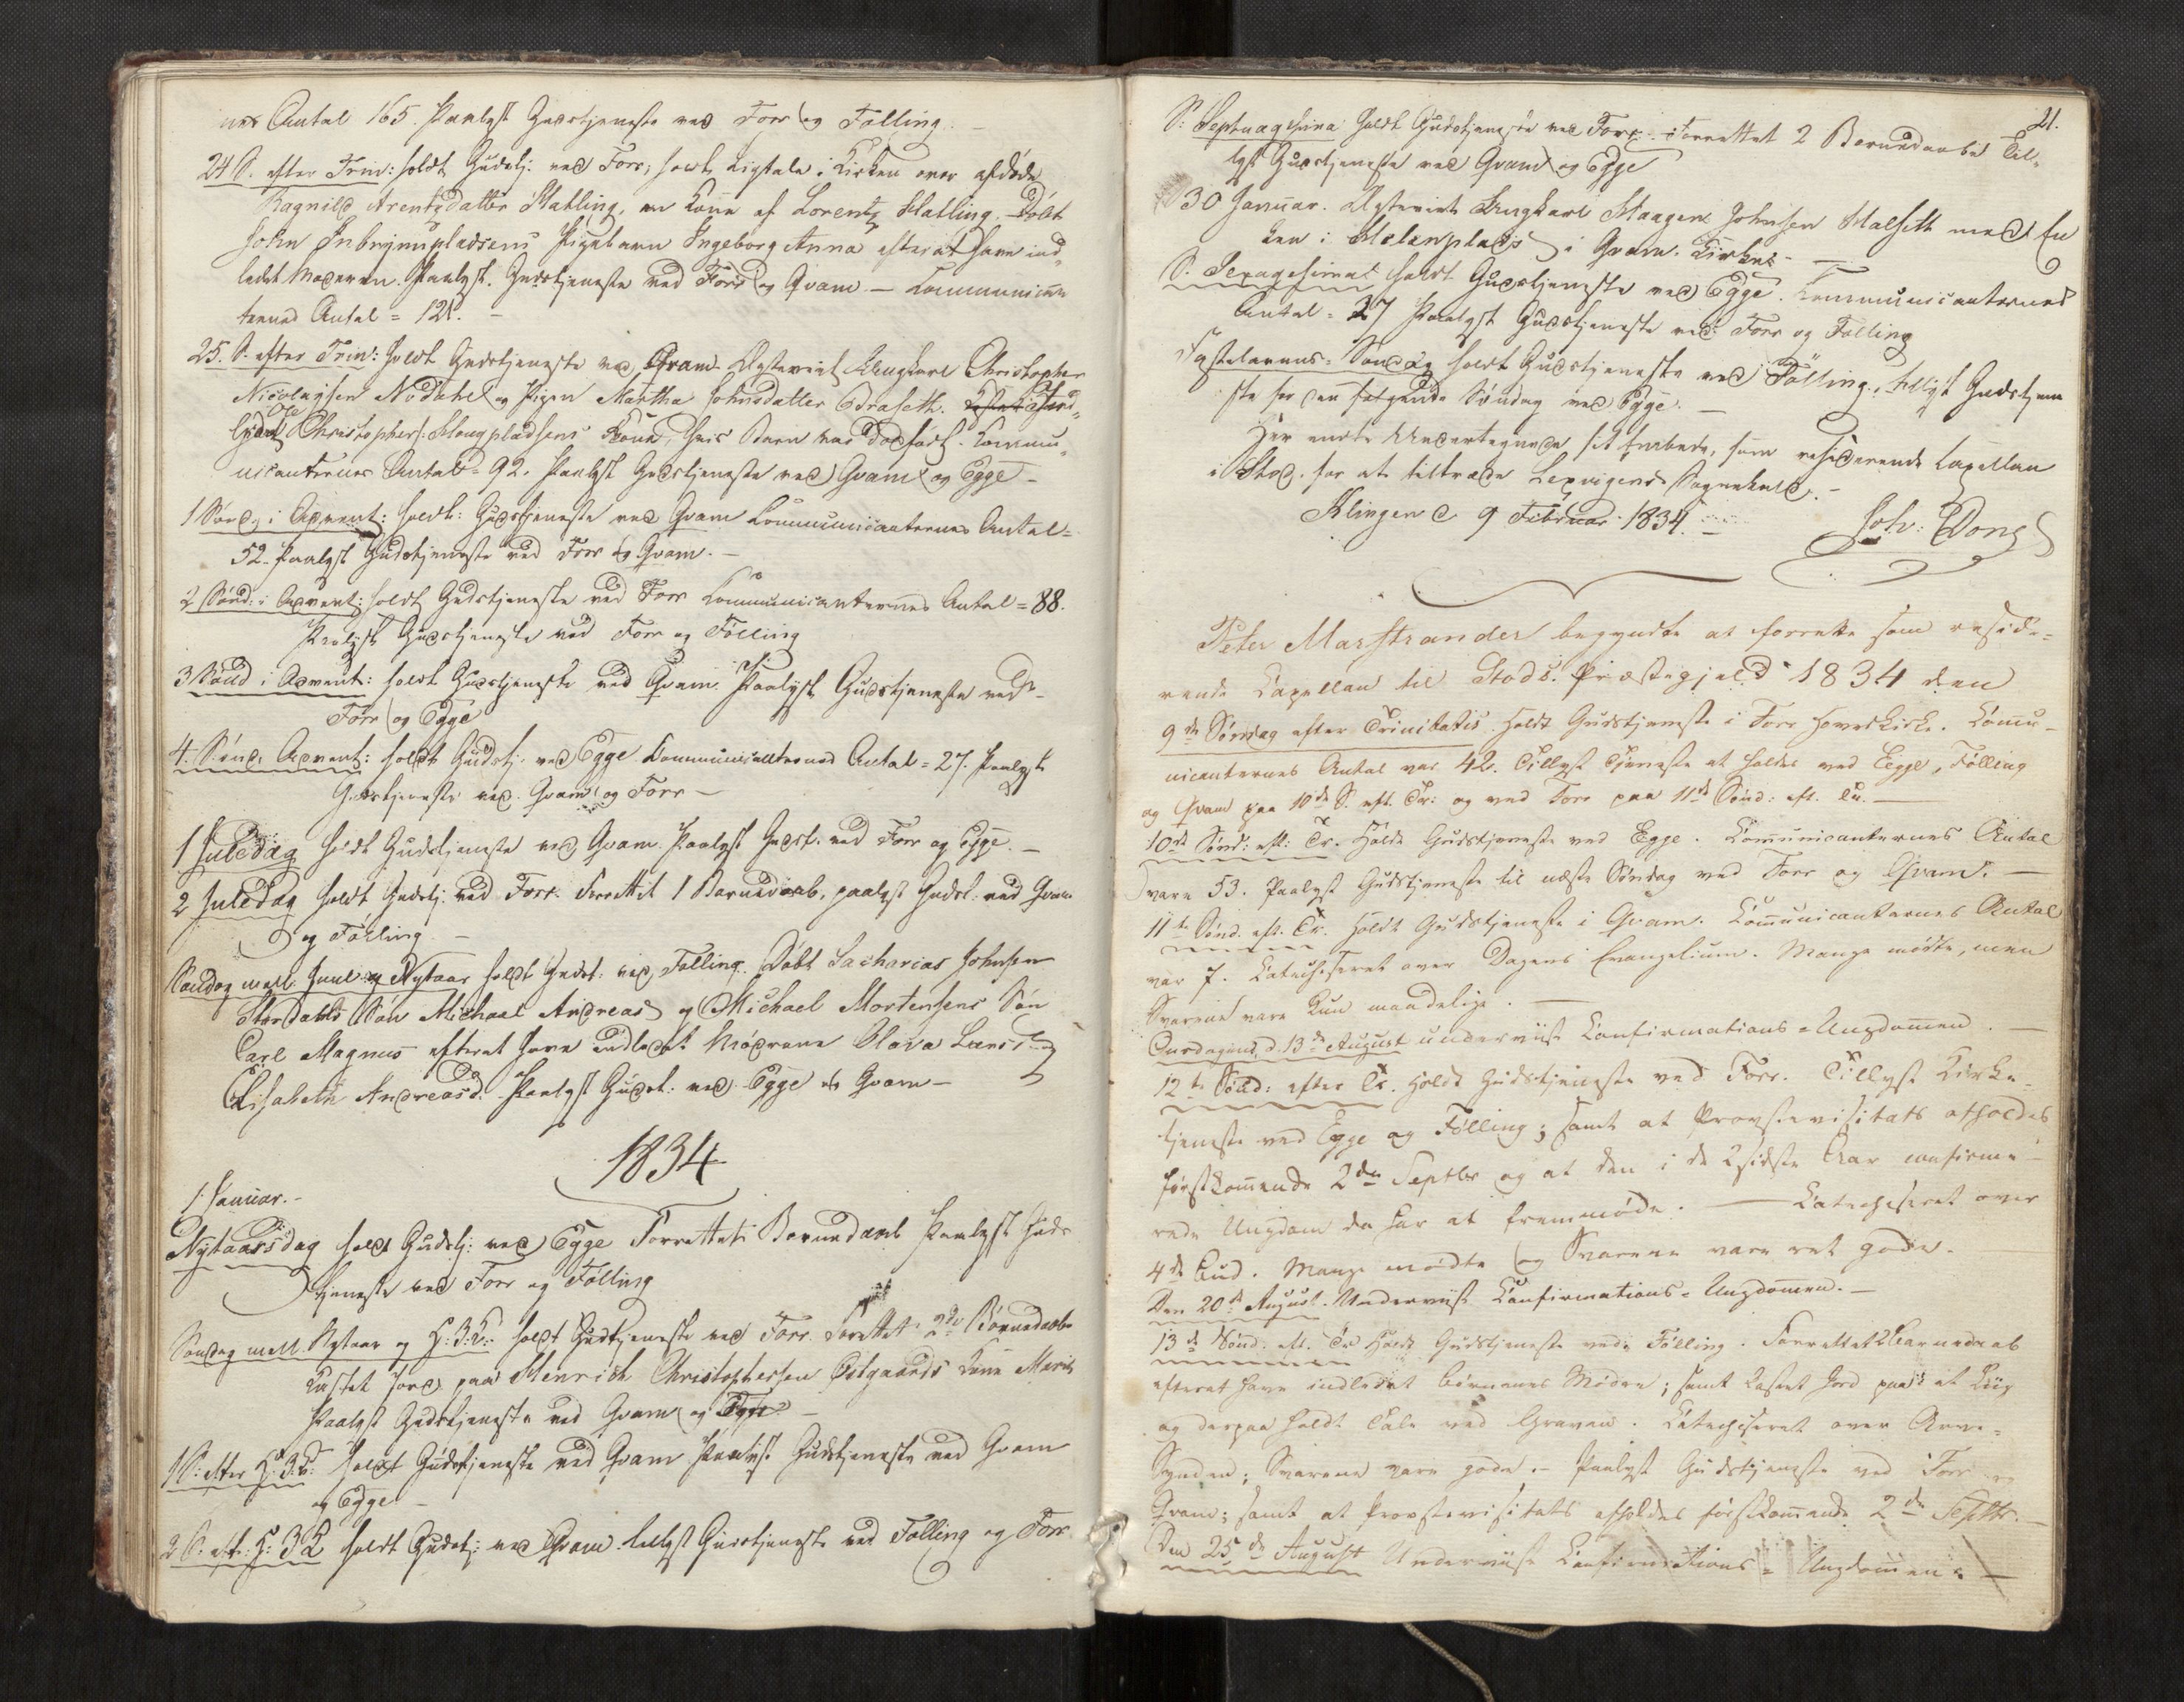 nes Antal 165. Paalyst Gudstjeneste ved For og Følling. –
24 S. efter Trin: holdt Gudstj: ved Forr, holdt Ligtale i Kirken over afdøde
Ragnild Arentzdatter Statling, en Kone af Lorentz Statling. Døbt
John Inbrynspladsens Pigebarn Ingeborg Anna efter at have ind-
ledet Moderen. Paalyst Gudstjeneste ved Forr og Qvam – Communican
ternes Antal = 121. –
25. S. efter Trin: holdt Gudstjeneste ved Qvam. Ægteviet Ungkarl Christopher
Nicolaysen Nødahl og Pigen Martha Johnsdatter
Ole Christophers: Kone, hvis Barn var dødfødt. Commu-
nicanternes Antal = 92. Paalyst Gudstjeneste ved Qvam og Egge –
1 Sønd. i Advent: holdt Gudstjeneste ved Qvam Communicanternes Antal =
52. Paalyst Gudstjeneste ved Forr og Qvam. –
2 Sønd: i Advent: holdt Gudstjeneste ved Forr Communicanternes Antal = 88.
Paalyst Gudstjeneste ved Forr og Følling
3 Sønd i Advent: holdt Gudstjeneste ved Qvam. Paalyst Gudstjeneste ved –
Forr og Egge
4. Sønd. Advent: holdt Gudstj. ved Egge Communicanternes Antal = 27. Paalyst
Gudstjeneste ved Qvam og Forr –
1 Juledag holdt Gudstjeneste ved Qvam. Paalyst Gudst. ved Forr og Egge. –
2 Juledag holdt Gudstj: ved Forr. Forrettet 1 Barnedaab, paalyst Gudst: ved Qvam
og Følling –
Søndag mell. Juul og Nytaar holdt Gudst: ved Følling. Døbt Zacharias Johnsen
Stordahls Søn Michael Andreas og Michael Mortensens Søn
Carl Magnus efterat have indledet Mødrene Olava Larsd. og
Elisabeth Andreasd. Paalyst Gudst. ved Egge og Qvam –
1834
1. Januar. –
Nytaarsdag holdt Gudstj: ved Egge Forrettet 1 Barnedaab Paalyst Guds
tjeneste ved Forr og Følling
Søndag mell. Nytaar og H: 3: K: holdt Gudstjeneste ved Forr. Forettet 2de Barnedaabe
Kastet Jord paa Henrich Christophersen Østgaards Kone Marit
Paalyst Gudstjeneste ved Qvam og Egge –
1 S: efter H: 3: K: holdt Gudstjeneste ved Qvam Paalyst Gudstjeneste ved Qvam
og Egge –
2 S. eft: H: 3 K holdt Gudstj: ved Qvam. tillyst Gudstjeneste ved Følling og Forr
21.
S: Septuagesima holdt Gudstjeneste ved Forr. Forrettet 2 Barnedaabe Til-
lyst Gudstjeneste ved Qvam og Egge
30 Januar. Ægteviet Ungkarl Johnsen Malseth med En
ken i Qvams Kirke –
S. Sexagesima holdt Gudstjeneste ved Egge. Communicanternes
Antal = 27 Paalyst Gudstjeneste ved: Forr og Følling
Fastelavens-Søndag holdt Gudstjeneste ved Følling, tillyst Gudstjene
ste for den følgende Søndag ved Egge. –
Her endte Undertegnede sit Embede, som residerende Capellan
i Stod, for at tiltræde Lexvigens Sognekald. –
Klingen d 9 Februar 1834. –
Joh: Dons
Peter Marstrander begyndte at forrette som reside-
rende Capellan til Stods Præstegjeld 1834 den
9de Søndag efter Trinitatis. Holdt Gudstjeneste i Forr Hovedkirke. Commu-
nicanternes Antal var 42. Tillyst Tjeneste at holdes ved Egge, Følling
og Qvam paa 10de S. eft. Tr: og ved Forr paa 11te Sønd: eft. Tr. –
10de Sønd: eft: Tr. Holdt Gudstjeneste ved Egge. Communicanternes Antal
vare 53. Paalyst Gudstjeneste til næste Søndag ved Forr og Qvam. –
11te Sønd. eft. Tr. Holdt Gudstjeneste i Qvam. Communicanternes Antal
var 7. Catechiseret over Dagens Evangelium. Mange mødte, men
Svarene vare kun maadelige. –
Onsdagen d. 13de August underviist Confirmations-Ungdommen. –
12te Sønd: efter Tr. Holdt Gudstjeneste ved Forr. Tillyst Kirke-
tjeneste ved Egge og Følling; samt at Provstevisitats afholdes
førstkommende 2den Septbr og at den i de 2 sidste Aar confirme-
rede Ungdom da har at fremmøde. – Catechiseret over
4de Bud. Mange mødte og Svarene vare ret gode.
Den 20de August. Underviist Confirmations-Ungdommen. –
13de Sønd. eft. Tr Holdt Gudstjeneste ved Følling. Forrettet 2 Barnedaab
efterat have indledet Børnenes Mødre; samt kastet Jord paa et Liig
og derpaa holdt Tale ved Graven. Catechiseret over Arve-
Synden; Svarene vare gode. – Paalyst Gudstjeneste ved Forr og
Qvam; samt at Provstevisitats afholdes førstkommende 2den Septbr. –
Den 25de August Underviist Confirmations-Ungdommen. –